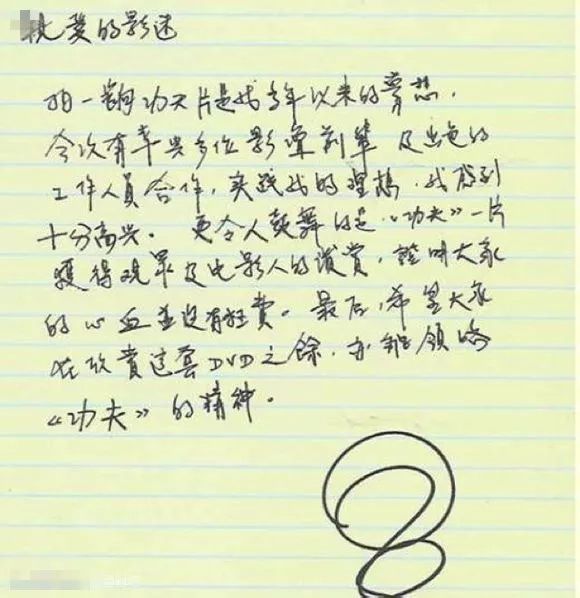 爱的影迷
拍一功夫片是我多年以来的夢想.
今次有幸與多位影壇前輩及出色的
工作人员合作,实践我的理想,我感到
十分高兴。更令人鼓舞的是《功夫》一片
獲得观眾及电影人的讚賞,證明大家
的心血並没有枉費。最后,希望大家
在欣賞这套DVD之餘,亦能领略
《功夫》的精神。